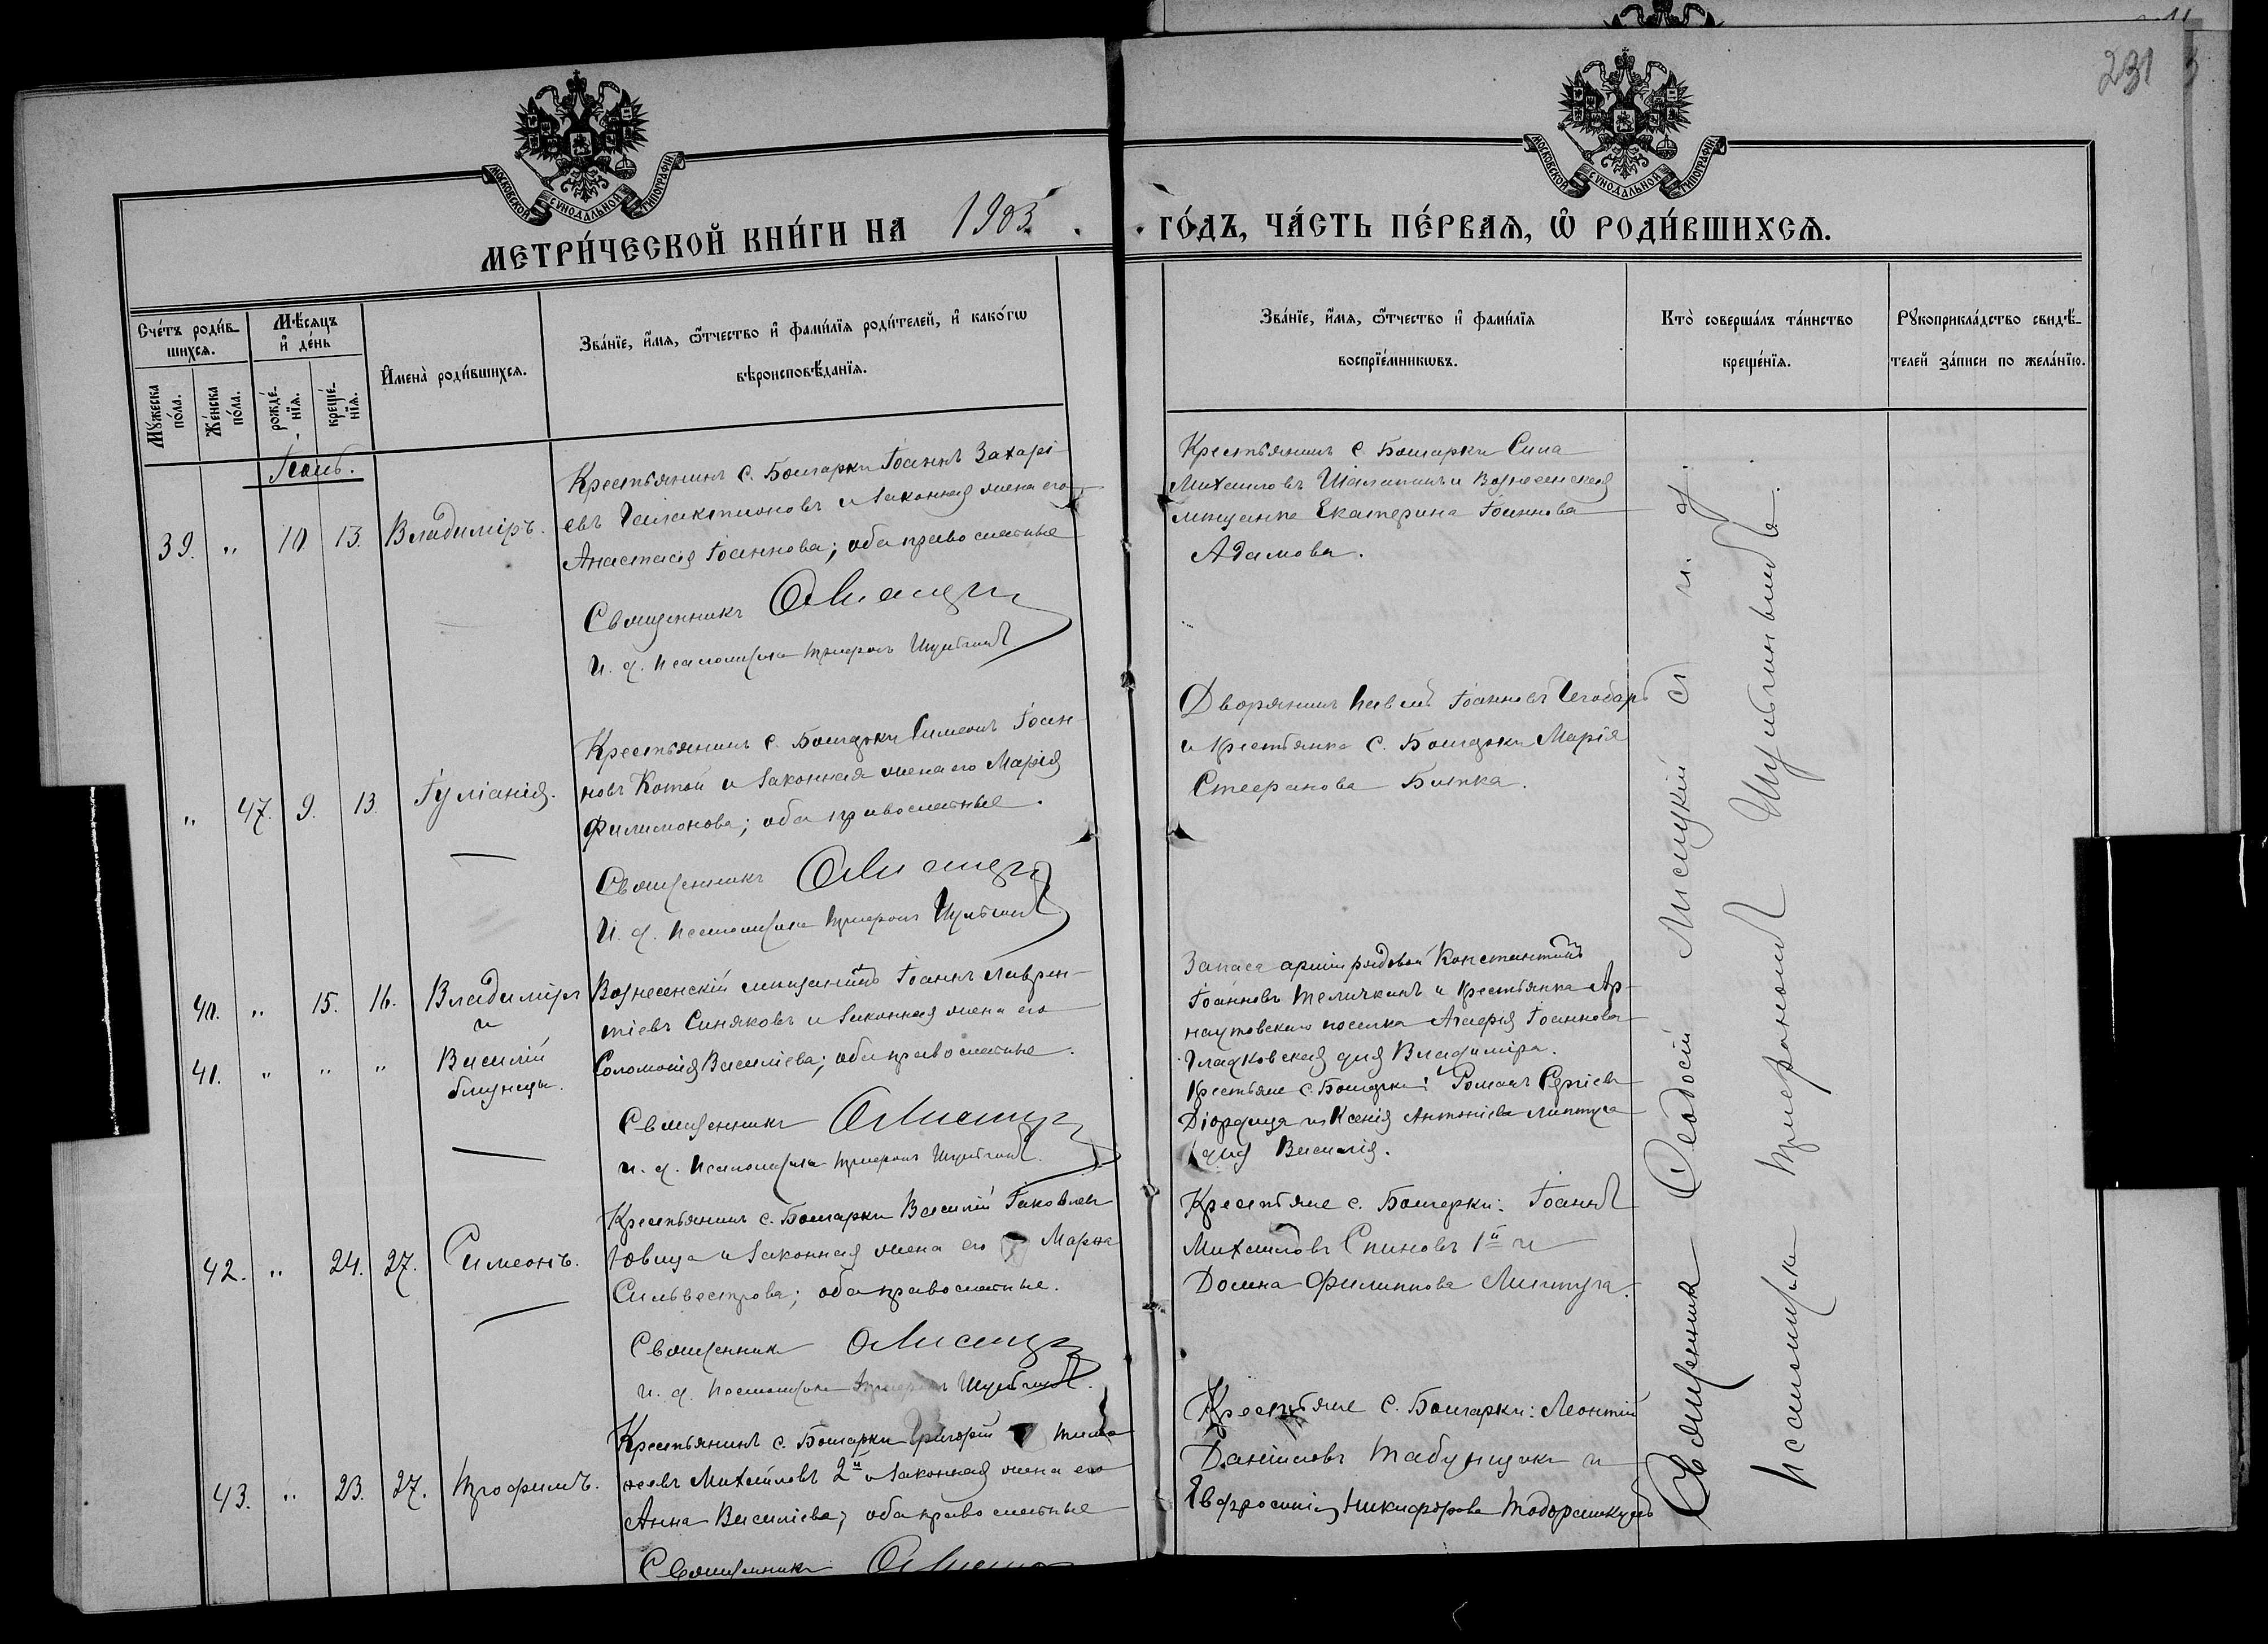 231
МОСКОВСКОЙ СѴНОДАЛЬНОЙ ТИПОГРАФІИ
МОСКОВСКОЙ СѴНОДАЛЬНОЙ ТИПОГРАФІИ
МЕТРИ́ЧЕСКОЙ КНИ́ГИ НА 1905 ГО́ДЪ, ЧА́СТЬ ПЕ́РВАѦ, Ѿ РОДИ́ВШИХСѦ.
Сче́тъ роди́в-
шихсѧ.
Мꙋ́жеска
по́ла.
Же́нска
по́ла.
Мѣ́сѧцъ
и҆ де́нь
рожде́-
нїѧ.
креще́-
нїѧ.
И҆мена̀ роди́вшихсѧ.
Зва́нїе, и҆́мѧ, ѻ҆́тчество и҆ фами́лїѧ роди́телей, и҆ како́гѡ
вѣроисповѣ́данїѧ.
Зва́нїе, и҆́мѧ, ѻ҆́тчество и҆ фами́лїѧ
воспрїе́мникѡвъ.
Кто̀ соверша́лъ та́инство
креще́нїѧ.
Рꙋкоприкла́дство свидѣ́-
телей за́писи по жела́нїю.
Іюль.
39. " 10 13. Владиміръ.
Крестьянинъ с. Болгарки Іоаннъ Захарі-
евъ Галактионовъ и законная жена его
Анастасія Іоаннова; оба православные
Священникъ
И. д. псаломщика Трифонъ
Крестьянинъ с. Болгарки Сила
Михаиловъ и Вознесенская
мѣщанка Екатерина Іоаннова
Адамова.
" 47. 9. 13. Іуліанія.
Крестьянинъ с. Болгарки Симеонъ Іоан-
новъ Котой и законная жена его Марія
Филимонова; оба православные.
Священникъ
И. д. псаломщика Трифонъ
Дворянинъ Павелъ Іоанновъ
и крестьянка с. Болгарки Марія
Стефанова Битка.
40. " 15. 16. Владиміръ
и
41. " " " Василій
близнецы.
Вознесенскій мѣщанинъ Іоаннъ Лаврен-
тіевъ Синяковъ и законная жена его
Соломонія Василіева; оба православные.
Священникъ
и. д. псаломщика Трифонъ
Запаса арміи рядовой Константинъ
Іоанновъ Теличкинъ и крестьянка Ар-
наутовскаго поселка Агафія Іоаннова
Гладковская для Владиміра.
Крестьяне с. Болгарки: Романъ Сергіевъ
Діордица и Ксенія Антоніева Липтуга
для Василія.
42. " 24. 27. Симеонъ.
Крестьянинъ с. Болгарки Василій Іаковлевъ
Іовица и законная жена его Марѳа
Сильвестрова; оба православные.
Священникъ
и. д. псаломщика Трифонъ
Крестьяне с. Болгарки: Іоаннъ
Михаиловъ Спиновъ 1й и
Домна Филиппова Липтуга.
43. " 23. 27. Трофимъ.
Крестьянинъ с. Болгарки Григорій Тимо-
феевъ Михайловъ 2й и законная жена его
Анна Василіева; оба православные
Священникъ
Крестьяне с. Болгарки: Леонтій
Даніиловъ Табунщикъ и
Евфросинія Никифорова
Священникъ Ѳеодосій Лисицкій съ и. д.
псаломщика Трифономъ